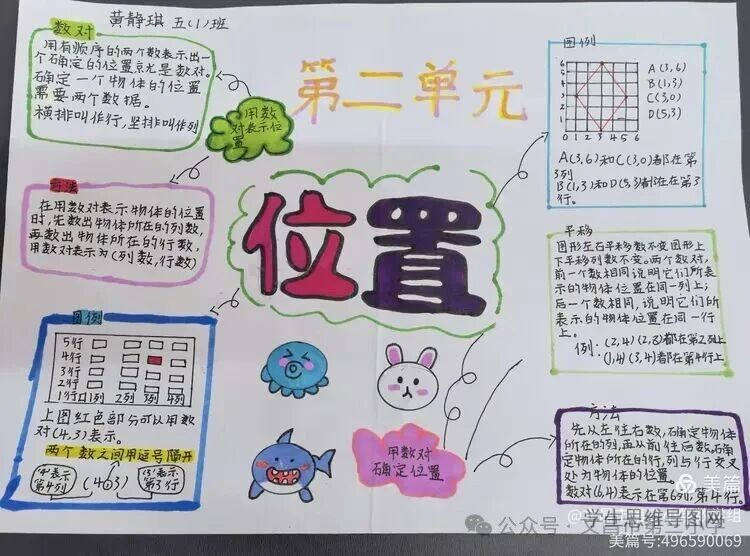 黄静琪 五(1)班
第二单元
位置
数对
用有顺序的两个数表示出一
个确定的位置就是数对。
确定一个物体的位置
需要两个数据。
横排叫作行,竖排叫作列
用数
对表示位
置
方法
在用数对表示物体的位置
时,先数出物体所在的列数,
再数出物体所在的行数,
用数对表示为(列数,行数)
图例
5行
4行
3行
2行
1行
1列
2列
3列
4列
上图红色部分可以用数
对(4,3)表示。
两个数之间用逗号隔开
"4"表示
第4列
"3"表示
第3行
图例
6
5
4
3
2
1
0 1 2 3 4 5 6
A(3,6)
B(1,3)
C(3,0)
D(5,3)
A(3,6)和C(3,0)都在第
3列
B(1,3)和D(5,3)都在第3
行。
平移
图形左右平移数不变图形上
下平移列数不变。两个数对,
前一个数相同说明它们所表
示的物体位置在同一列上;
后一个数相同,说明它们所
表示的物体位置在同一行
上。
例:(2,4)(2,8)都在第2列上
(1,4)(3,4)都在第4行上
用数对
确定位置
方法
先从左往右数,确定物体
所在的列,再从前往后数,确
定物体所在的行,列与行交叉
处为物体的位置。
数对(6,4)表示在第6列,第4行。
美篇
学生思维导图网
公众号
美篇号:496590069